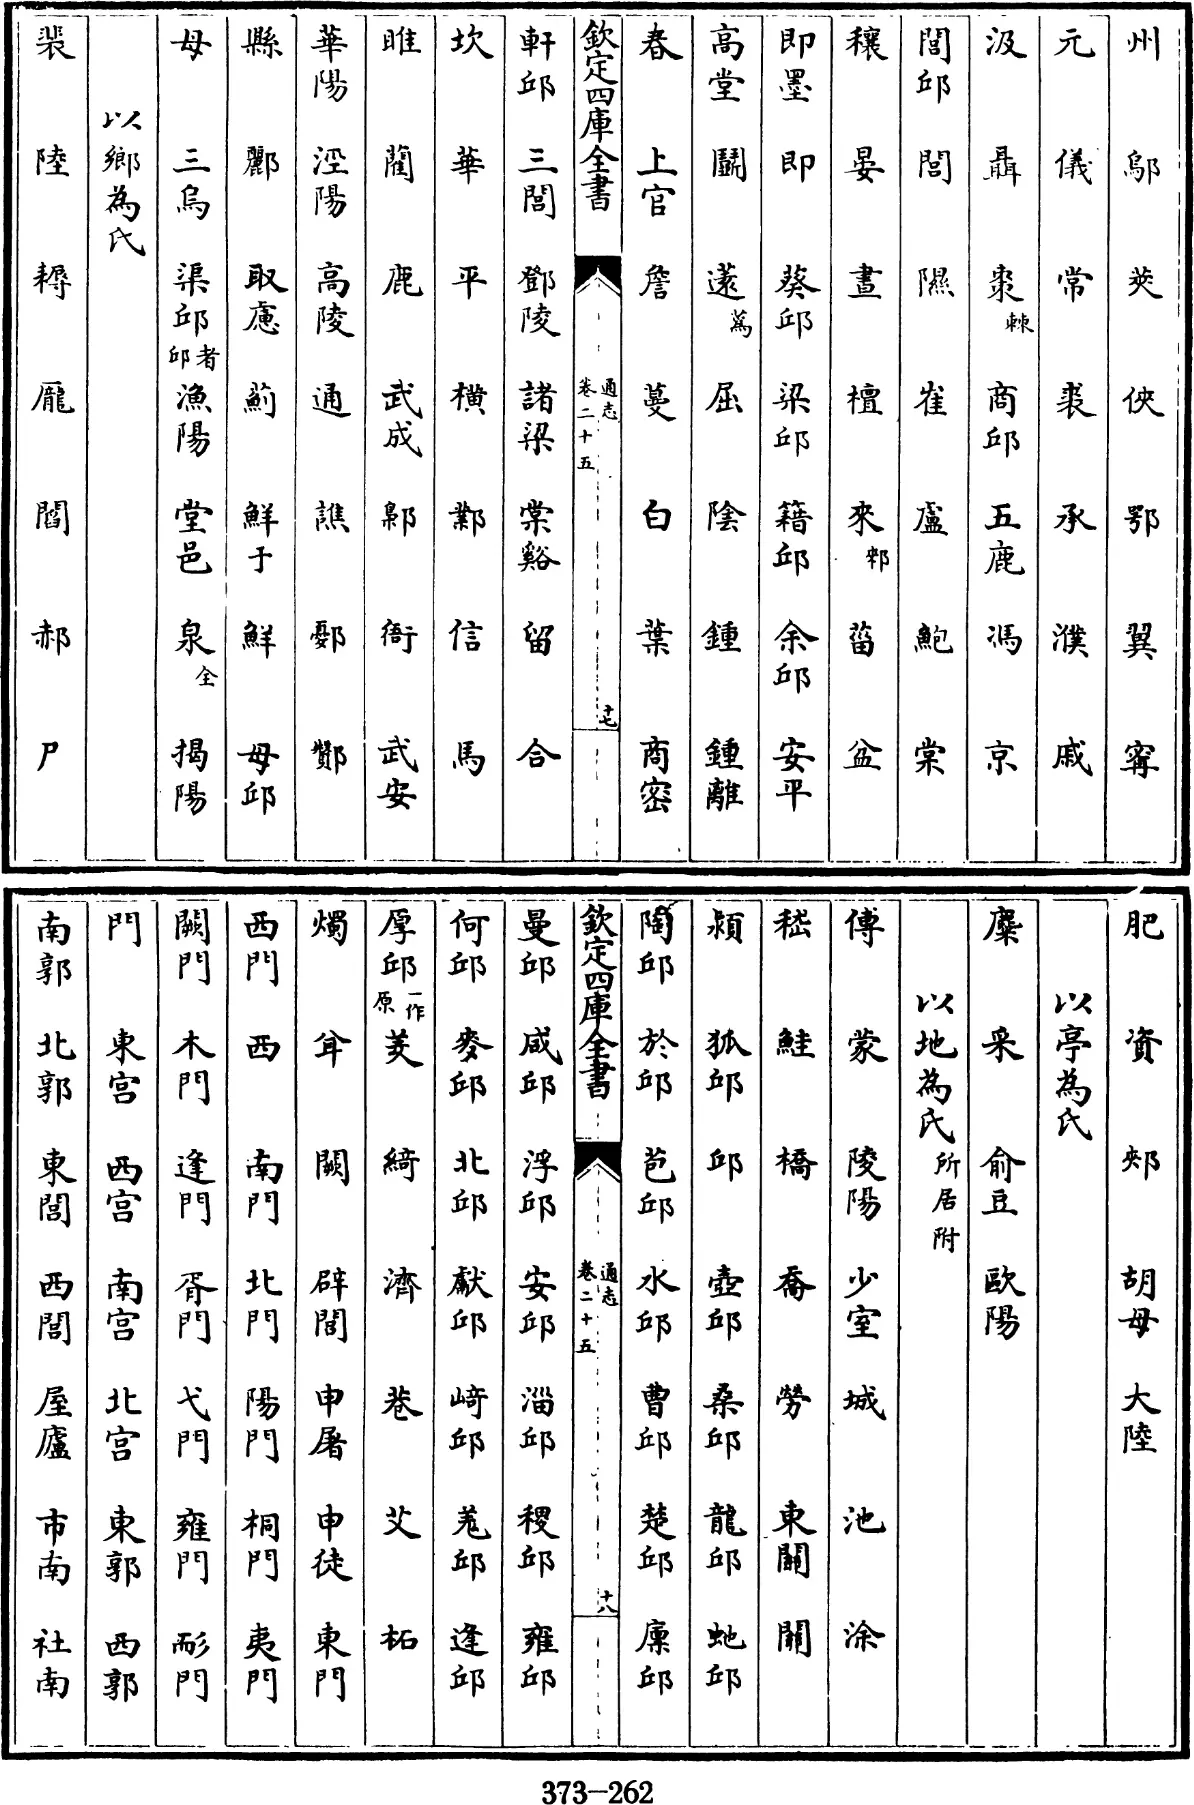 州 鄔 莢 俠 鄂 翼 甯
元 儀 常 裘 承 濮 戚
汲 聶 棗棘 商邱 五鹿 馮 京
閭邱 閭 隰 崔 盧 鮑 棠
穰 晏 晝 檀 來郲 菑 盆
即墨 即 葵邱 梁邱 籍邱 余邱 安平
高堂 鬭 薳蒍 屈 陰 鍾 鍾離
春 上官 詹 蔓 白 葉 商密
欽定四庫全書
通志
卷二十五
十七
軒邱 三閭 鄧陵 諸梁 棠谿 留 合
坎 華 平 橫 鄴 信 馬
睢 藺 鹿 武成 鄡 衙 武安
華陽 涇陽 高陵 通 譙 鄾 酇
縣 酈 取慮 薊 鮮于 鮮 毋邱
毋 三烏 渠邱者邱 漁陽 堂邑 泉全 揭陽
以鄉為氏
裴 陸 耨 龐 閻 郝 尸
肥 資 郟 胡毋 大陸
以亭為氏
麋 采 俞豆 歐陽
以地為氏所居附
傅 蒙 陵陽 少室 城 池 涂
嵇 鮭 橋 喬 勞 東關 關
潁 狐邱 邱 壺邱 桑邱 龍邱 虵邱
陶邱 於邱 苞邱 水邱 曹邱 楚邱 廩邱
欽定四庫全書
通志
卷二十五
十八
曼邱 咸邱 浮邱 安邱 淄邱 稷邱 雍邱
何邱 麥邱 北邱 獻邱 崎邱 菟邱 逢邱
厚邱一作原 美 綺 濟 巷 艾 柘
燭 耸 闕 辟閭 申屠 申徒 東門
西門 西 南門 北門 陽門 桐門 夷門
闕門 木門 逢門 胥門 弋門 雍門 耏門
門 東宮 西宮 南宮 北宮 東郭 西郭
南郭 北郭 東閭 西閭 屋廬 市南 社南
373-262